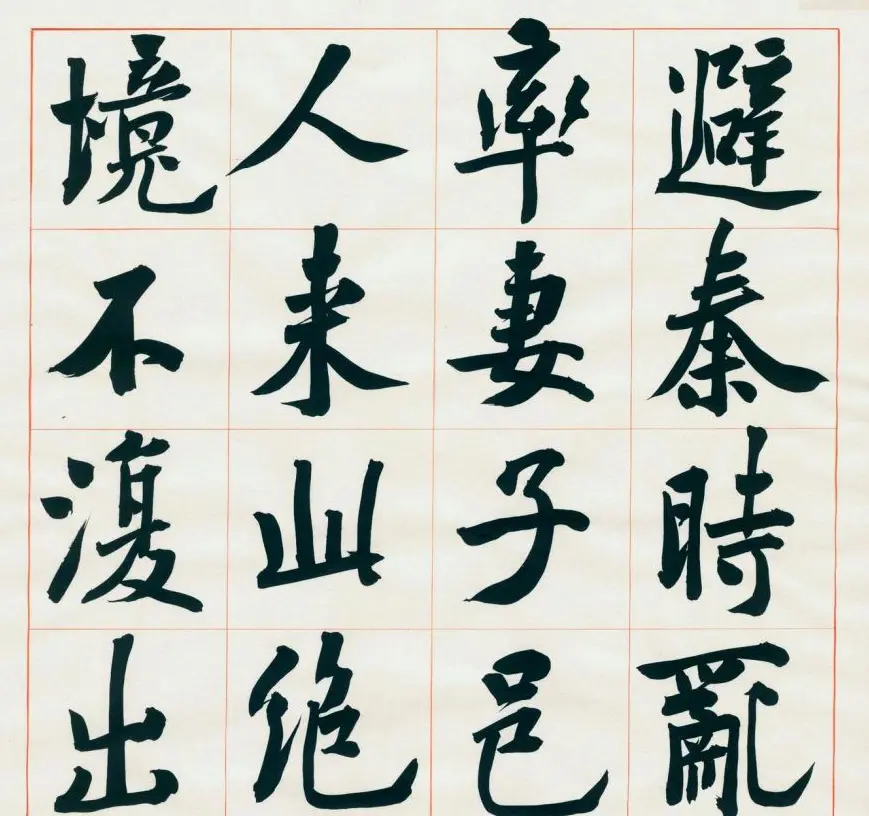 避秦時亂
率妻子邑
人来此絶
境不復出